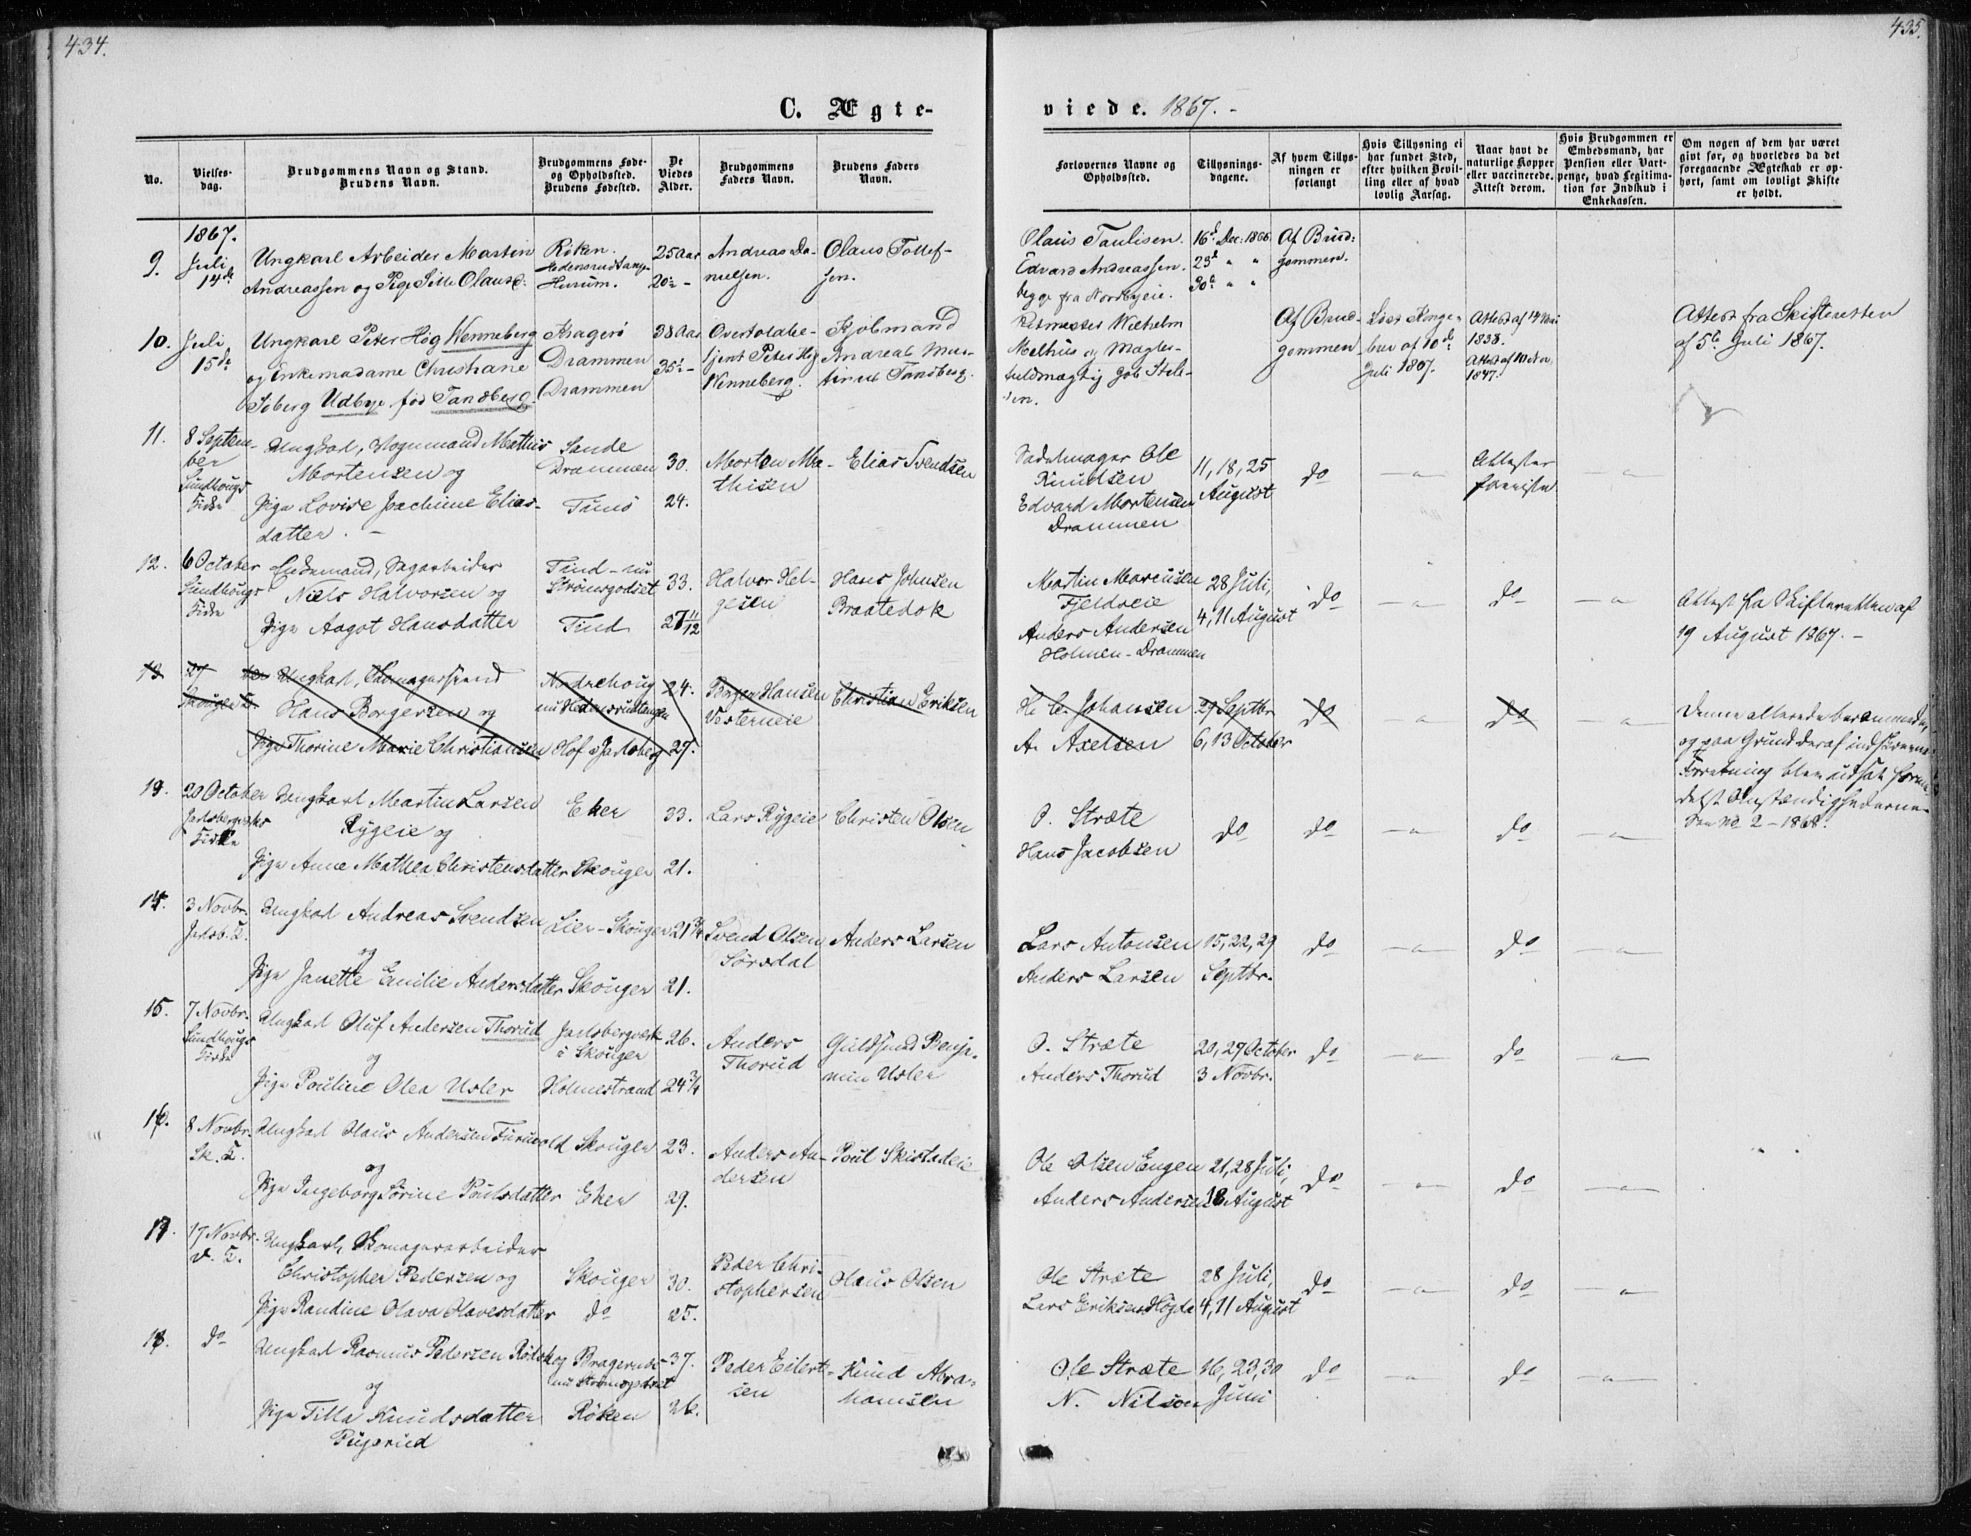 434.
435.
C. Ægte-
viede. 1867. -
No.
Vielses-
dag.
Brudgommens Navn og Stand.
Brudens Navn.
Brudgommens Føde-
og Opholdssted.
Brudens Fødested.
De
Viedes
Alder.
Brudgommens
Faders Navn.
Brudens Faders
Navn.
Forlovernes Navne og
Opholdssted.
Tillysnings-
dagene.
Af hvem Tillys-
ningen er
forlangt
Hvis Tillysning ei
har fundet Sted,
efter hvilken Bevil-
ling eller af hvad
lovlig Aarsag.
Naar havt de
naturlige Kopper
eller vaccinerede.
Attest derom.
Hvis Brudgommen er
Embedsmand, har
Pension eller Vart-
penge, hvad Legitima-
tion for Indskud i
Enkekassen.
Om nogen af dem har været
gift før, og hvorledes da det
foregaaende Ægteskab er op-
hørt, samt om lovligt Skifte
er holdt.
1867.
9.
Juli
14de
Ungkarl Arbeider Martin
Andreassen og Pige Olausd.
Röken.
Hurum.
25 Aar
20½ -
Andreas Da-
nielsen.
Olaus Tollef-
sen.
Olaus Paulsen.
Edvard Andreassen.
begge fra
16d Dec: 1866
23d " "
30d " "
Af Brud-
gommen.
10.
Juli
15de
Ungkarl Peter Høg Wenneberg
og Enkemadame Christiane
Soberg Udbye, fød Tandberg.
Kragerö
Drammen
Drammen
38 Aar
35½ -
Overtoldbe-
tjent Peter Høg
Wenneberg.
Kjöbmand
Andreas
Tandberg.
Wilhelm
Melhus og
Af Brud-
gommen
Konge-
brev af 10de
Juli 1867.
Attest af 14
1838.
Attest af 10
1847.
Attest fra Skifteretten
af 5te Juli 1867.
11.
8 Septem-
ber
Sundhougs
Kirke
Ungkarl, Vognmand Mathis
Mortensen og
Pige Lovise Jachime Elias-
datter. -
Sande
Drammen
30.
24.
Morten Ma-
thisen
Elias Svendsen
Sadelmager Ole
Knudsen
Edvard Mortensen
Drammen
11, 18, 25
August
do
- " -
Attester
foreviste
- " -
12.
6 October
Sundhougs
Kirke
Enkemand, Sagarbeider
Niels Halvorsen og
Pige Aagot Hansdatter
Tind - nu
Strömsgodset
Tind
33.
27 11/12
Halvor Hel-
gesen
Hans Johnsen
Braatedok
Martin Marcusen
Fjeldveie
Anders Andersen
Holmen - Drammen
28 Juli,
4, 11 August
do
- " -
do
- " -
Attest fra Skifteretten af
19 August 1867. -
13
27
Skouger K.
Ungkarl, Skomagersvend
Hans Borgersen og
Pige Thorine Marie Christiansen
Norderhoug
nu Hedensrudtangen
Hof i Jarlsberg
24.
27.
Borger Hansen
Vesterneie
Christian Eriksen
H. C. Johansen
A. Axelsen
29 Septbr
6, 13 October
do
- " -
do
- " -
Denne allerede berammede
og paa Grund deraf indskrevne
Forretning blev udsat forme-
delst Omstændighederne.
See No 2 - 1868.
13.
20 October
Jarlsbergværks
Kirke
Ungkarl Martin Larsen
Rygeie og
Pige Anne Mathea Christensdatter
Eker
Skouger
33.
21.
Lars Rygeie
Christen Olsen
O. Stræte
Hans Jacobsen
do
do
- " -
do
- " -
14.
3 Novbr.
Jarlsb. K.
Ungkarl Andreas Svendsen
og
Pige Janette Emilie Andersdatter
Lier - Skouger
Skouger
21 3/4
21.
Svend Olsen
Sørsdal
Anders Larsen
Lars Antonsen
Anders Larsen
15, 22, 29
Septbr.
do
- " -
do
- " -
15.
7 Novbr.
Sundhougs
Kirke
Ungkarl Oluf Andersen Thorud
og
Pige Pauline Olea Usler
Jarlsbergværk
i Skouger
Holmestrand
26.
24 3/4
Anders
Thorud
Guldsmed Benja-
min Usler
O. Stræte
Anders Thorud
20, 27 October
3 Novbr.
do
- " -
do
- " -
16.
8 Novbr.
Sk. K.
Ungkarl Olaus Andersen Furuvold
og
Pige Ingeborg Sörine Poulsdatter
Skouger
Eker
23.
29.
Anders An-
dersen
Poul Skistadeie
Ole Olsen Engen
Anders Andersen
21, 28 Juli,
18 August
do
- " -
do
- " -
17.
17 Novbr.
S. K.
Ungkarl, Skomagerarbeider
Christopher Pedersen og
Pige Randine Olava Olavesdatter
Skouger
do
30.
25.
Peder Chri-
stophersen
Olaus Olsen
Ole Stræte
Lars Eriksen Högda
28 Juli,
4, 11 August
do
- " -
do
- " -
18.
do
Ungkarl Rasmus Pedersen Rödskog
og
Pige Tilla Knudsdatter
Pugerud
Bragernes
nu Strömsgodset
Röken
37.
26.
Peder Eilert-
sen
Knud Abra-
hamsen
Ole Stræte
N. Nilsen
16, 23, 30
Juni
do
- " -
do
- " -